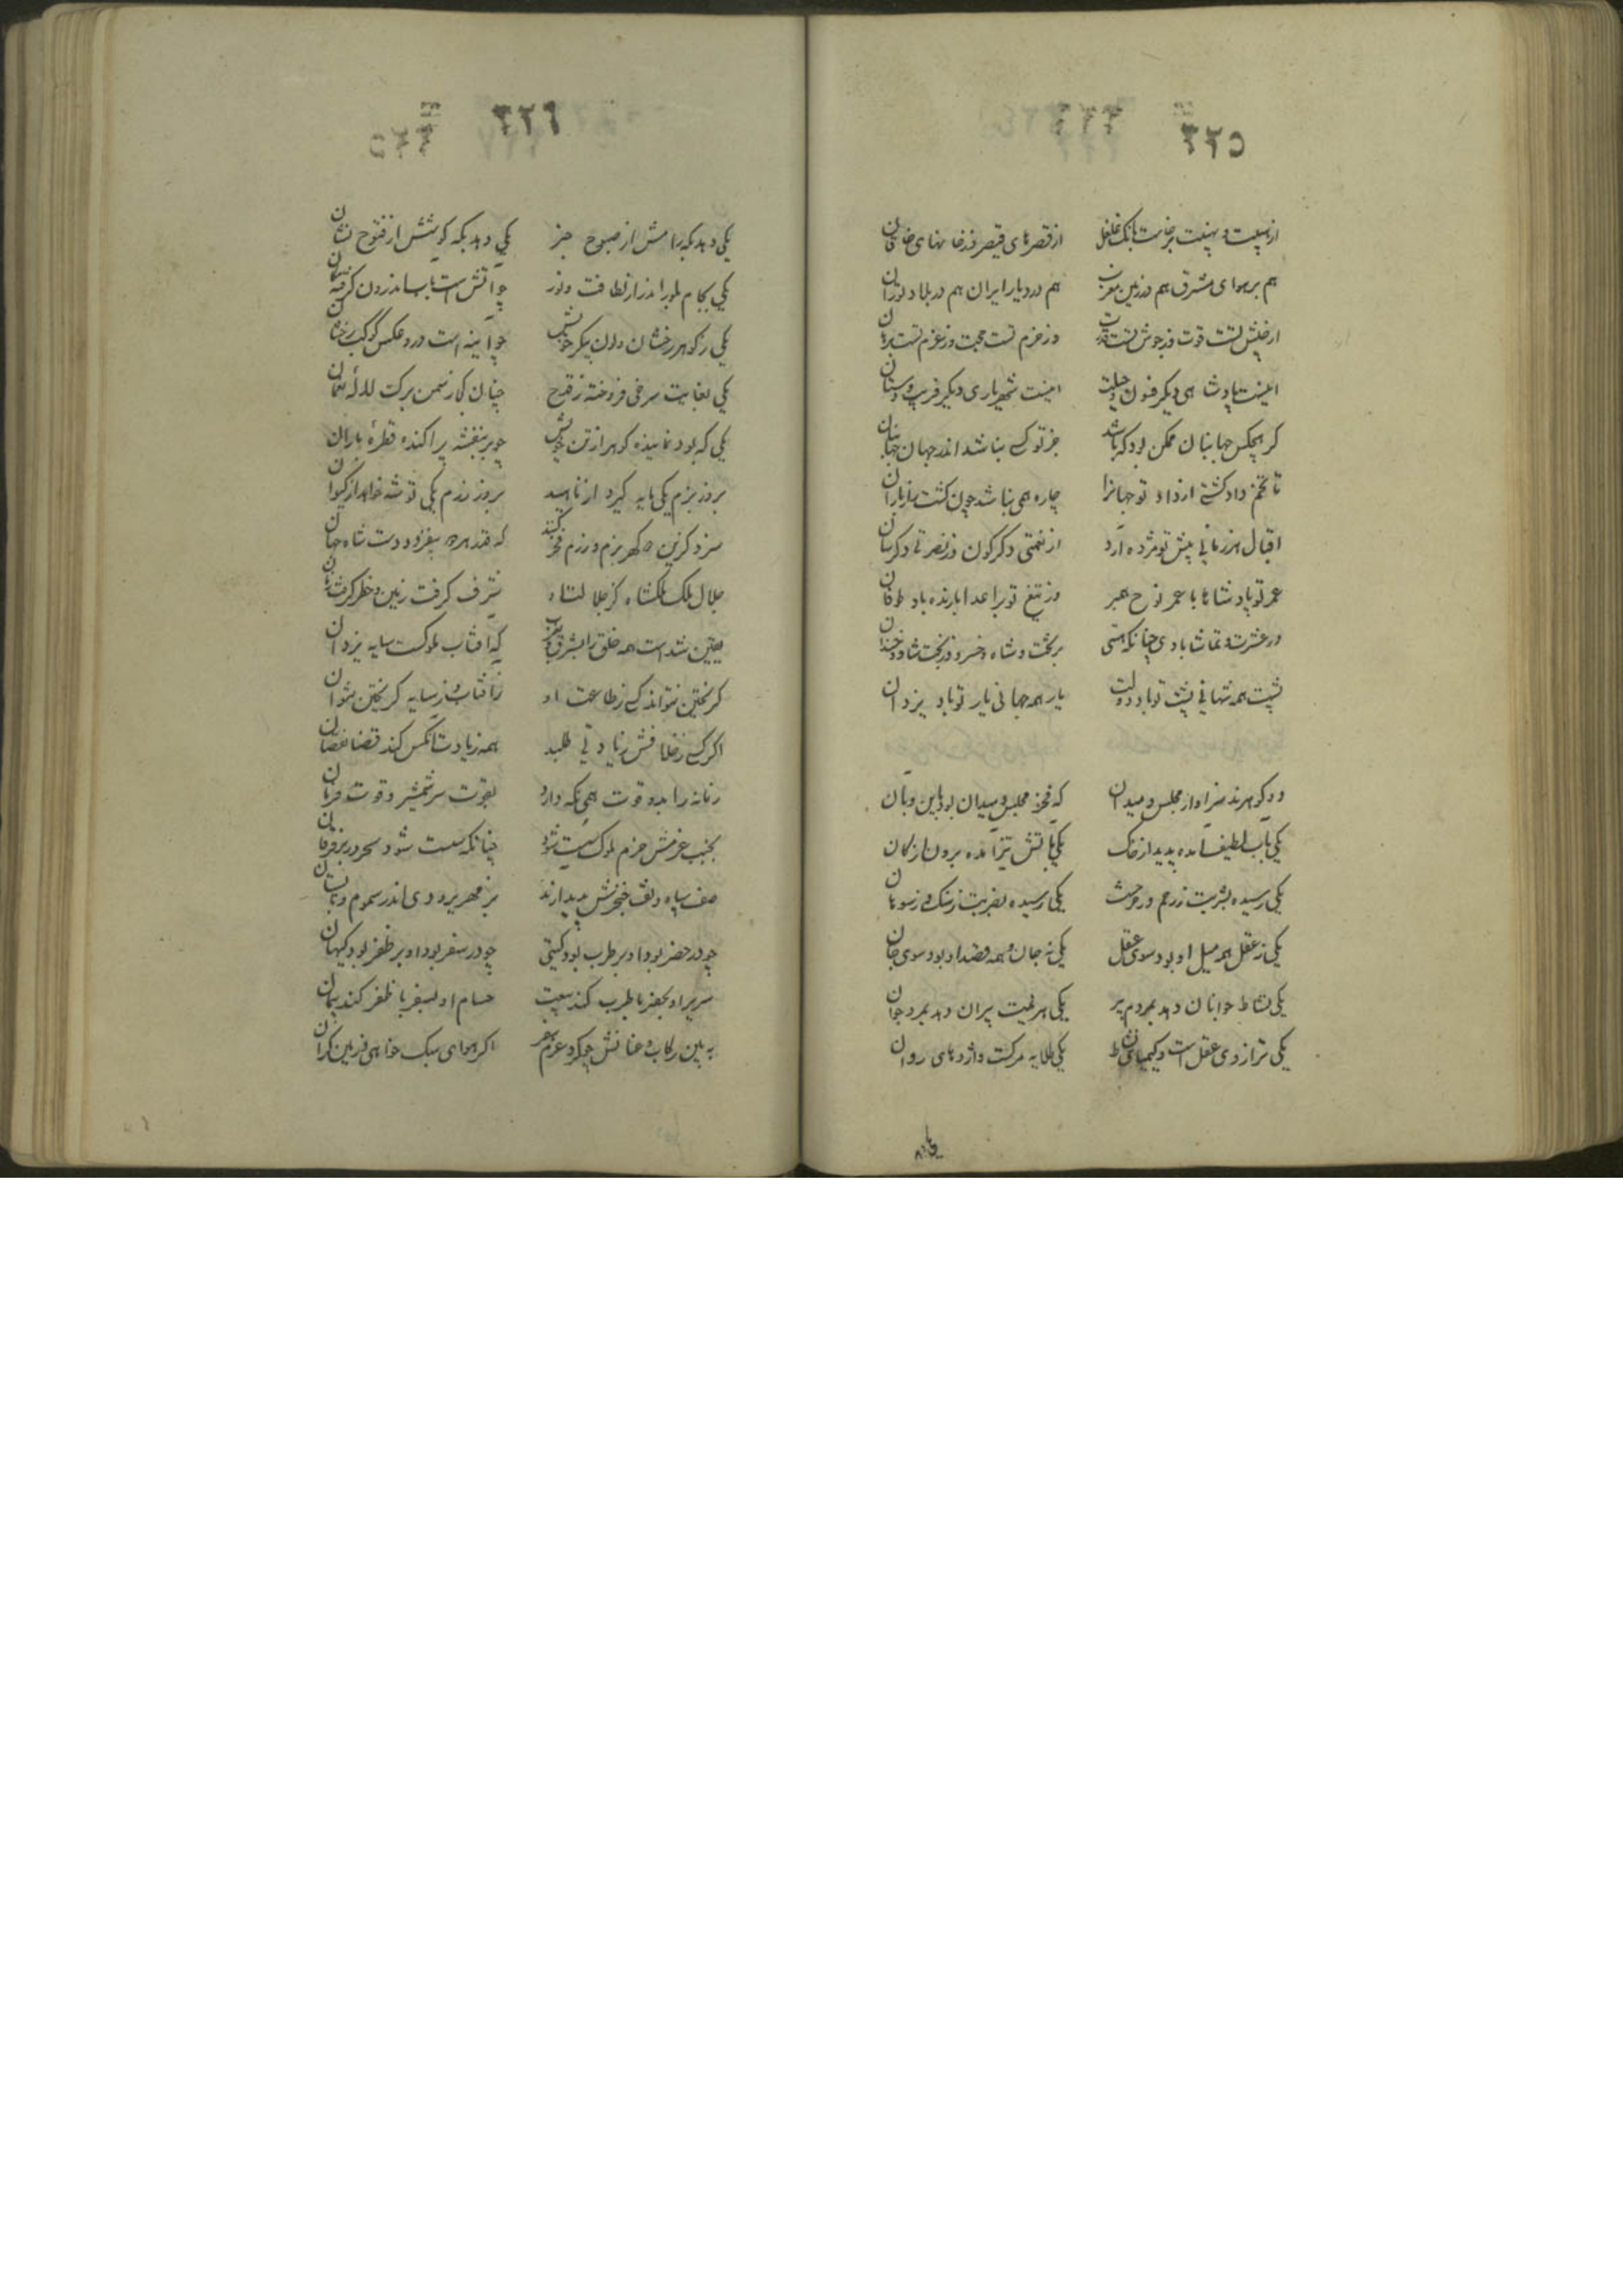 ٢٢٥
از هیبت و نهیبت برخاست بانک غلغل از قصرهای قیصر وز خانهای خاقان
هم بر هوای مشرق هم در زمین مغرب هم در دیار ایران هم در بلاد توران
از جنبش تست قوت وز جوش تست قدرت وز حزم تست حجت وز عزم تست برهان
اینست پادشاهی دیکر فسون و حیلت اینست شهریاری دیکر فریب و دستان
کر هیچکس جهانبان ممکن بود که باشد جز تو کسی نباشد اندر جهان جهانبان
تا تخم داد کشتی از داد تو جهانرا چاره همی نباشد چون کشت را ز باران
اقبال هر زمانی پیش تو مژده آرد از نعمتی دکرکون وز نصرتی دکرسان
عمر تو پادشاها با عمر نوح همبر وز تیغ تو بر اعدا بارنده باد طوفان
در عشرت و تماشا بادی چنانکه هستی بر تخت و شاه و خسرو وز بخت شاد و خندان
پشت همه شهانی پشت تو باد دولت یار همه جهانی یار تو باد یزدان
دو کوهرند سزاوار مجلس و میدان که فخر مجلس و میدان بود باین و بآن
یکی بآب لطیف آمده پدید از خاک یکی بآتش تیز آمده برون از کان
یکی رسیده بشربت ز رحم در خرشت یکی رسیده بضربت ز سنک در سوهان
یکی ز عقل همه میل او بود سوی عقل یکی ز جان و همه قصد او بود سوی جان
یکی نشاط جوانان دهد بمردم پیر یکی هزیمت پیران دهد بمرد جوان
یکی ترازوی عقل است و کیمیای نشاط یکی طلایه مرکست و اژدهای روان
٢٢٦
یکی دهد بکه رامش از صبوح خبر یکی دهد بکه کوشش از فتوح نشان
یکی بجام بلور اندر از لطافت و نور چو آتش است بآب اندرون کرفته مکان
یکی ز کوهر رخشان درون پیکر خویش چو آینه است درو عکس کوکب رخشان
یکی بغایت سرخی فروخته ز قدح چنان کجا ز سمن برک لاله نعمان
یکی که بود نماینده کوهر از تن خویش چو بر بنفشه پراکنده قطره باران
بروز بزم یکی مایه کیرد از ناهید بروز رزم یکی توشه خواهد از کیوان
سزد کزین دو کهر بزم و رزم فخر کنند که قدر هر دو بیفزود دست شاه جهان
جلال ملک ملکشاه کز جلالت شاه شرف کرفت زمین و خطر کرفت زمان
یقین شداست همه خلق را بشرق و بغرب که آفتاب ملوکست سایه یزدان
کریختن نتواند کسی ز طاعت او ز آفتاب و ز سایه کریختن نتوان
اکر کسی ز خلافش زیادتی طلبد همه زیادت آنکس کند قضا نقصان
زمانه را بدو قوت همی نکه دارد بقوت سر شمشیر و قوت فرمان
بجنب عزمش حزم ملوک سست شود چنانکه سست شود سحر در بر فرقان
صف سپاه و تف خنجرش پدید آرند به زمهریر و دی اندر سموم و تابستان
چو در حضر بود او بر طرب بود کیتی چو در سفر بود او بر ظفر بود کیهان
سریر او بحضر با طرب کند بیعت حسام او بسفر با ظفر کند پیمان
به بین رکاب و عنانش چو کرد عزم سفر اکر هوای سبک خواهی و زمین کران